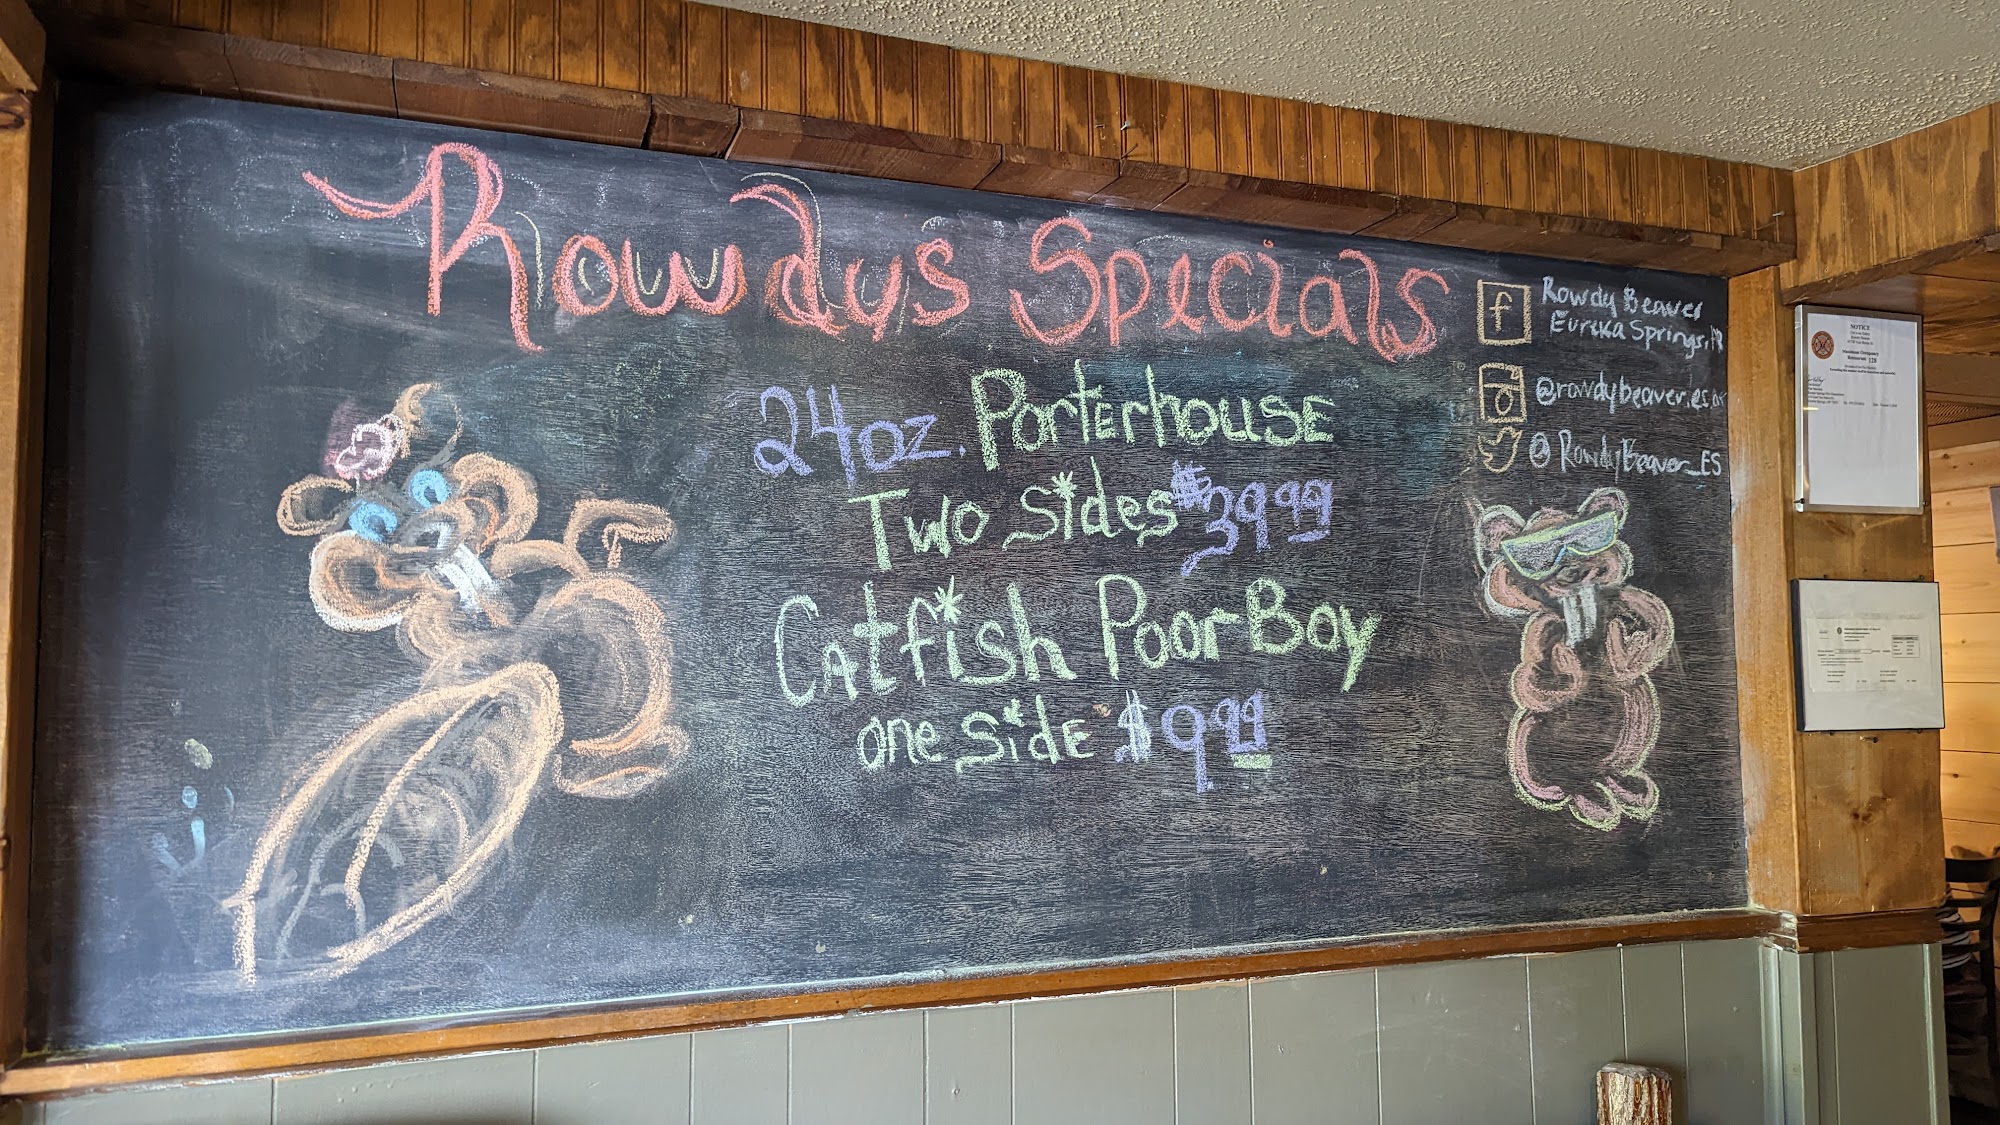 Rowdys Specials
24oz. Porterhouse
Two sides $39.99
Catfish Poor Boy
one side $9.99
f
Rowdy Beaver
Eureka Springs, AR
@rowdybeaver.es.ar
@RowdyBeaver_ES
NOTICE
Maximum Occupancy
Restaurant 128